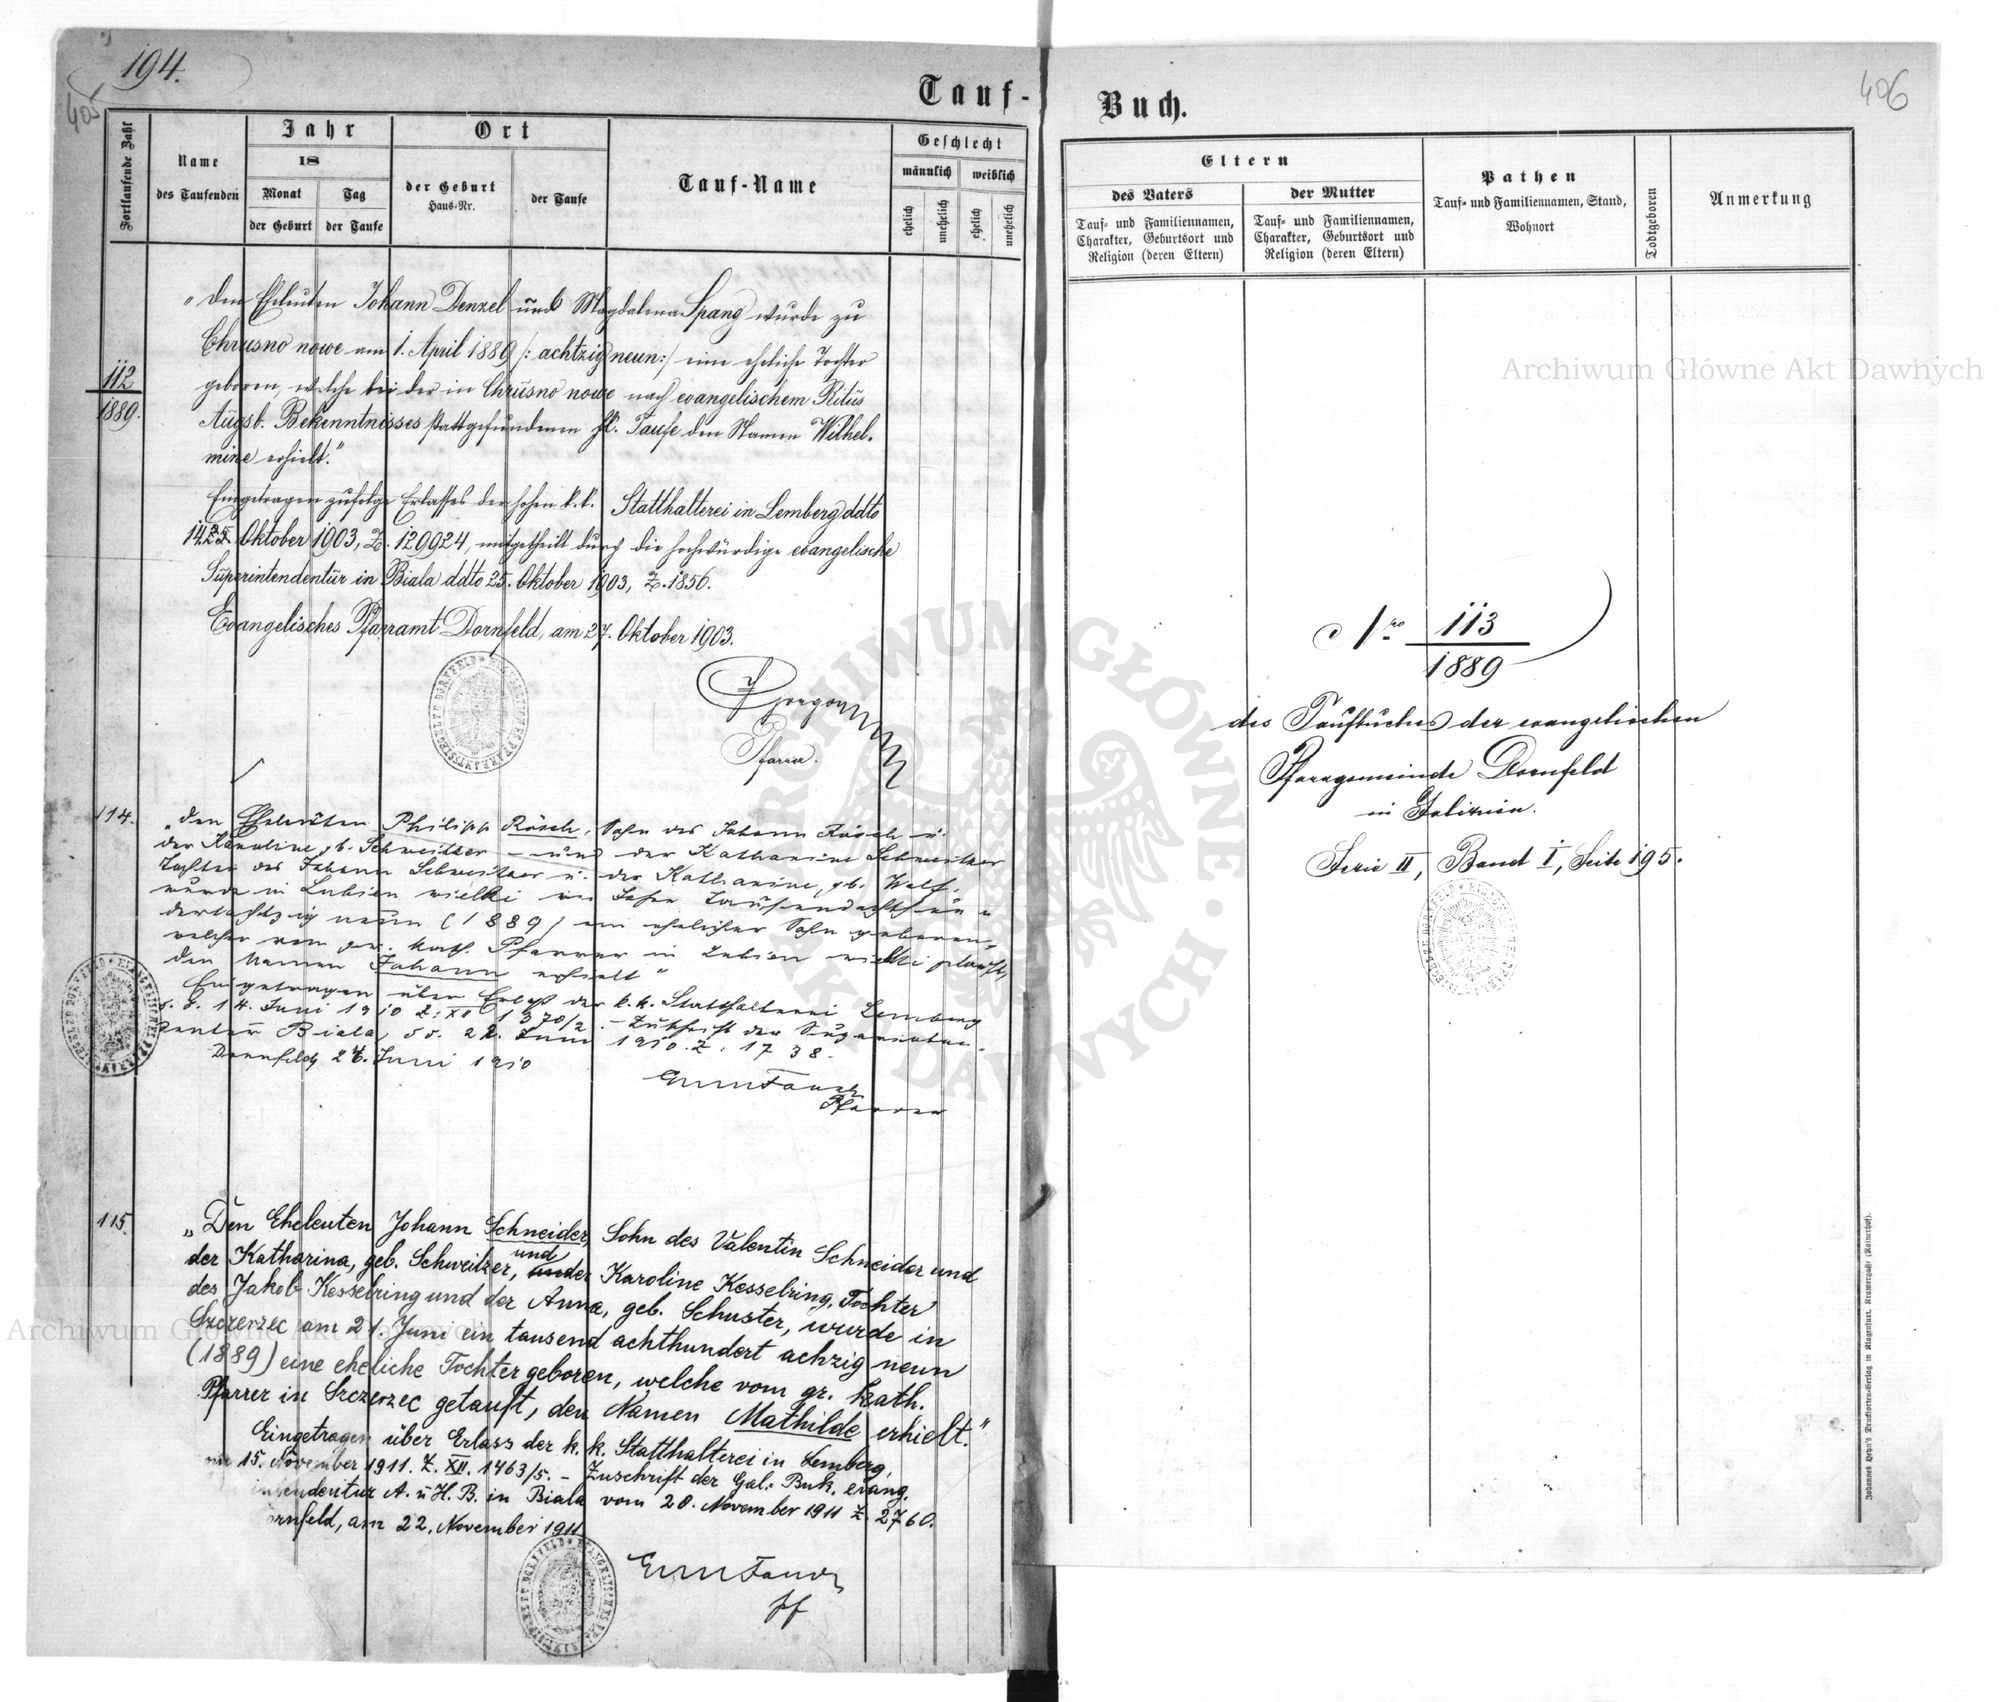 194.
405
Tauf-
Fortlaufende Zahl
Name
des Taufenden
Jahr
18
Monat
der Geburt
Tag
der Taufe
Ort
der Geburt
Haus-Nr.
der Taufe
Tauf-Name
Geschlecht
männlich
weiblich
ehelich
unehelich
ehelich
unehelich
112
1889.
"Den Eheleuten Johann Denzel und Magdalena Spang wurde zu
Chrusno nowe am 1. April 1889 /: achtzig neun :/ eine eheliche Tochter
geboren, welche bei der in Chrusno nowe nach evangelischem Ritus
Augsb. Bekenntnisses stattgefundenen hl. Taufe den Namen Wilhel-
mine erhielt."
Eingetragen zufolge Erlasses der hohen k. k. Statthalterei in Lemberg ddto
Oktober 1903, Z. 129924, mitgetheilt durch die hochwürdige evangelische
Superintendentur in Biala ddto 25. Oktober 1903, Z. 1856.
Evangelisches Pfarramt Dornfeld, am 27. Oktober 1903.
Pfarrer.
114.
"Den Eheleuten Philipp Rösch, Sohn des Johann Rösch u.
der Karoline, gb. Schweitzer – und der Katharine Schweitzer
Tochter des Johann Schweitzer u. der Katharine, gb. Wolf.
wurde in Lubien wielki im Jahre Tausendachthun
dertachtzig neun (1889) ein ehelicher Sohn geboren,
welcher vom gr. kath. Pfarrer in Lubien wielki getauft,
den Namen Johann erhielt"
Eingetragen über Erlaß der k. k. Statthalterei Lemberg
14. Juni 1910 Z: XII 1370/2. – Zuschrift der Superinten-
dentur Biala, dd. 22. Juni 1910. Z: 1738.
Dornfeld, 24. Juni 1910
Pfarrer
115.
"Den Eheleuten Johann Schneider, Sohn des Valentin Schneider und
der Katharina, geb. Schweitzer, und der Karoline Kesselring, Tochter
des Jakob Kesselring und der Anna, geb. Schuster, wurde in
Szczerzec am 21. Juni ein tausend achthundert achzig neun
(1889) eine eheliche Tochter geboren, welche vom gr. kath.
Pfarrer in Szczerzec getauft, den Namen Mathilde erhielt."
Eingetragen über Erlass der k. k. Statthalterei in Lemberg,
15. November 1911. Z. XII. 1463/5. – Zuschrift der Gal.-Buk. evang.
intendentur A. u H. B. in Biala vom 20. November 1911 Z. 2760.
rnfeld, am 22. November 1911
Pf
406
Buch.
Eltern
des Vaters
Tauf- und Familiennamen,
Charakter, Geburtsort und
Religion (deren Eltern)
der Mutter
Tauf- und Familiennamen,
Charakter, Geburtsort und
Religion (deren Eltern)
Pathen
Tauf- und Familiennamen, Stand,
Wohnort
Todtgeboren
Anmerkung
Nro 113
1889
des Taufbuches der evangelischen
Pfarrgemeinde Dornfeld
in Galizien.
Serie II, Band I, Seite 195.
Johannes Heyn's Drucksorten-Verlag in Klagenfurt, Kramergasse (Kaiserhof).
Archiwum Główne Akt Dawnych
Archiwum Główne Akt Dawnych
ARCHIWUM GŁÓWNE AKT DAWNYCH